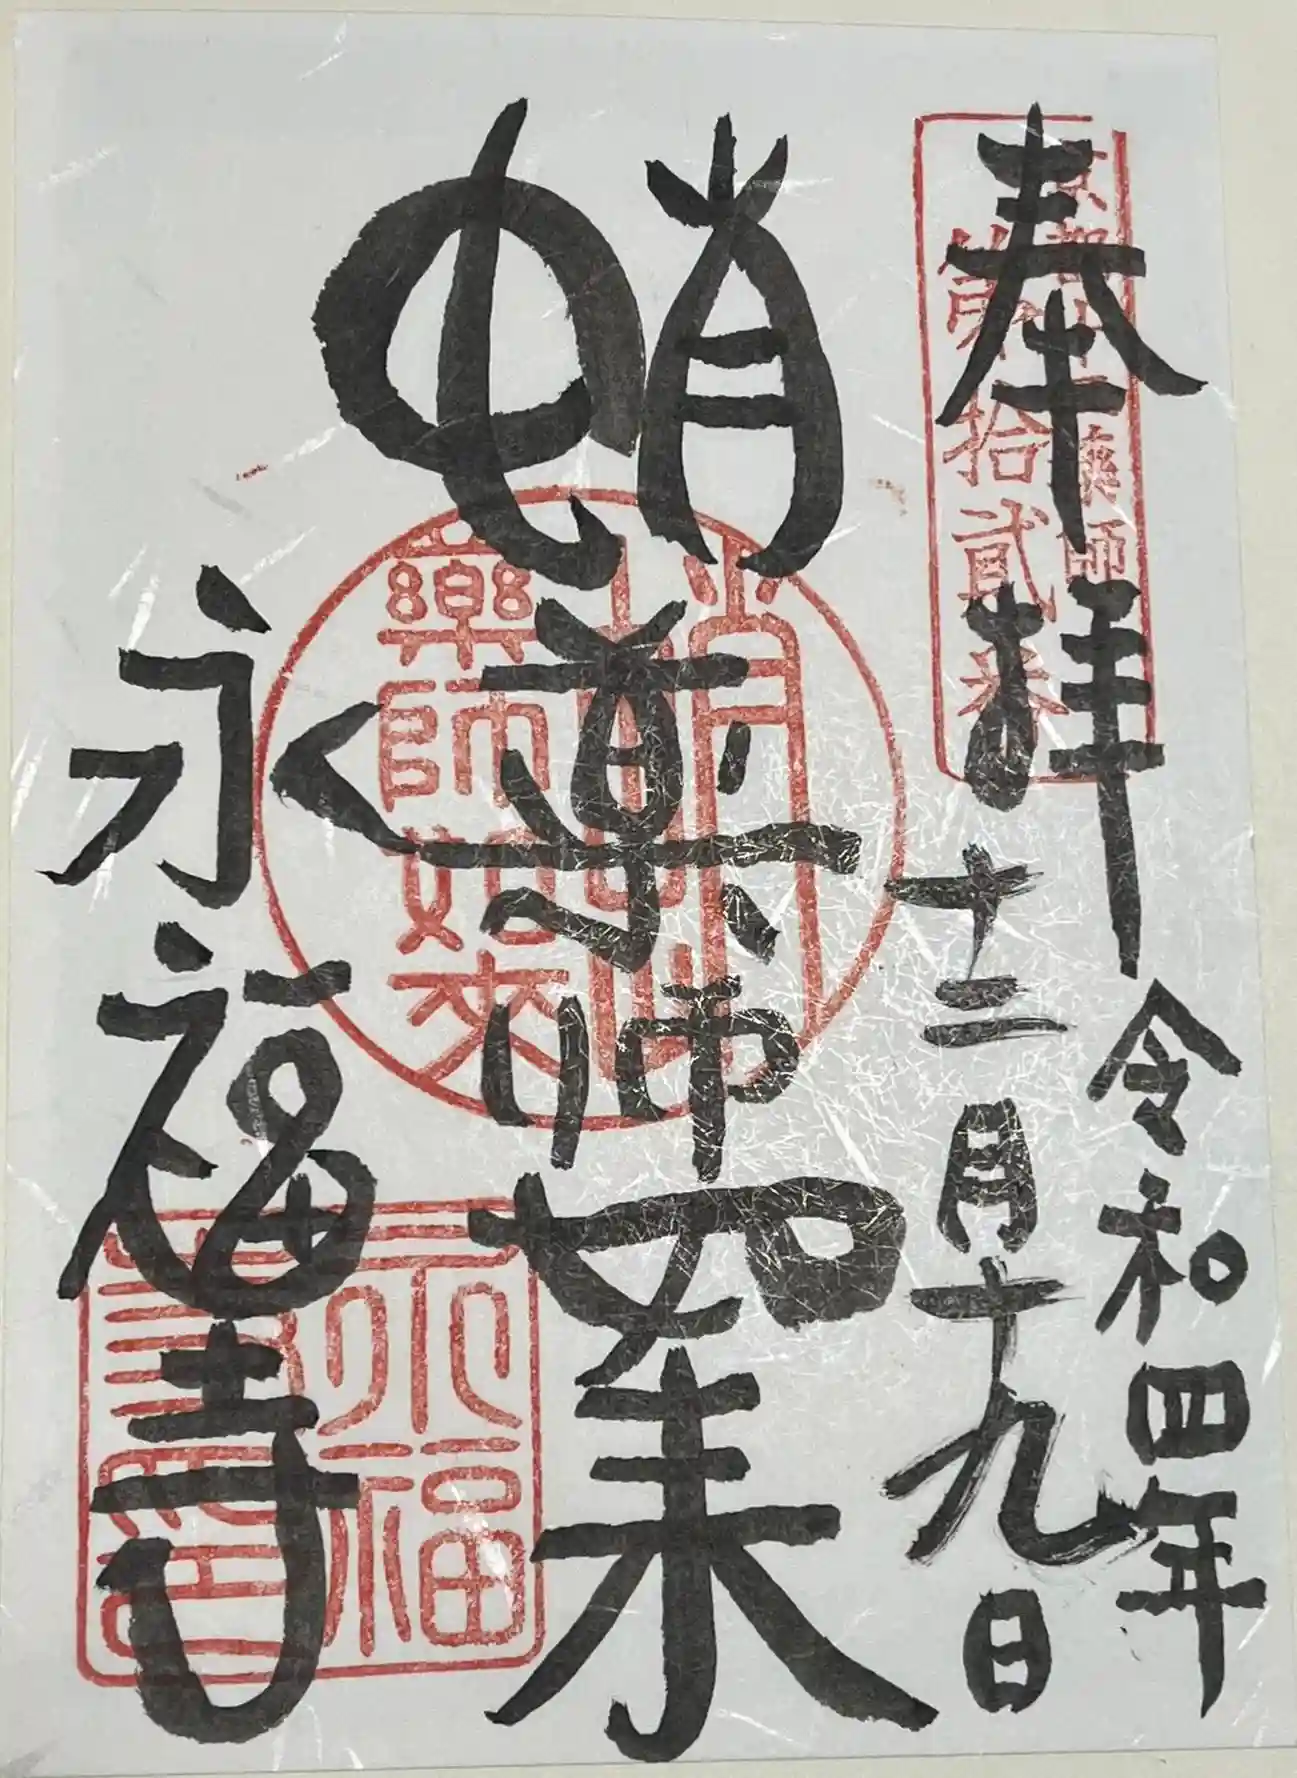 奉拝
令和四年
十二月十九日
蛸薬師如来
永福寺
京都十二薬師
第拾貳番
蛸
藥師如來
永福
寺印